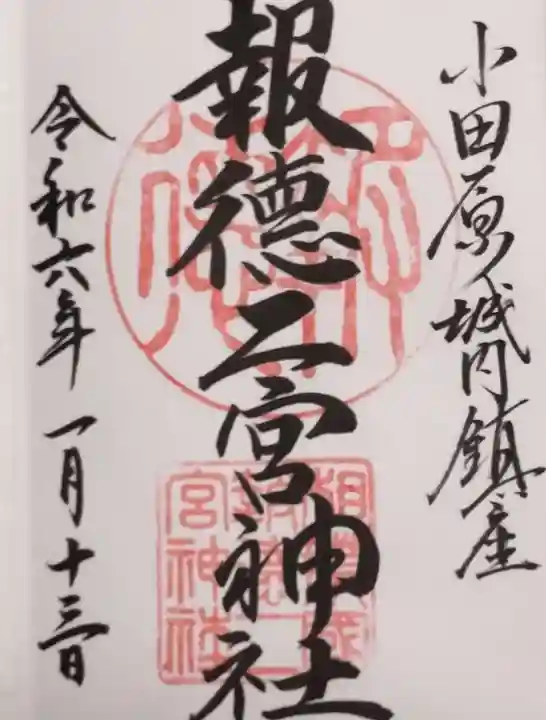 小田原城内鎮座
報徳二宮神社
令和六年一月十三日
相模國
報徳二
宮神社